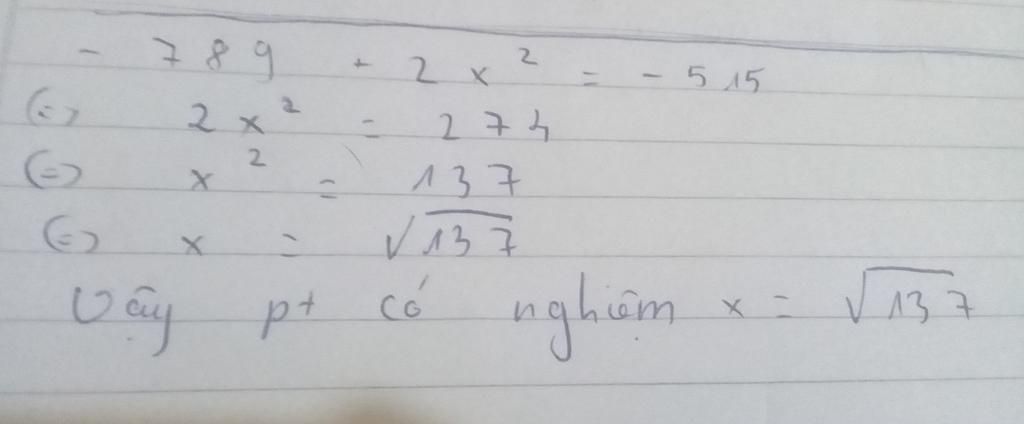 - 789 + 2x² = - 515
(=) 2x² = 274
(=) x² = 137
(=) x = √137
Vậy pt có nghiệm x = √137